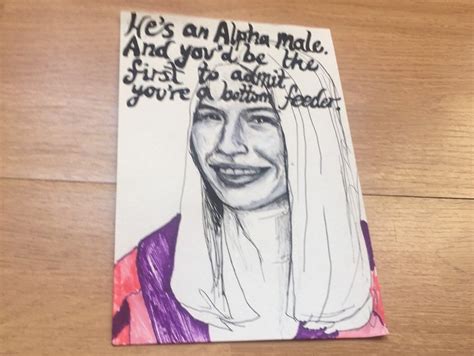 He's an Alpha male.
And you'd be the
first to admit
you're a bottom feeder.